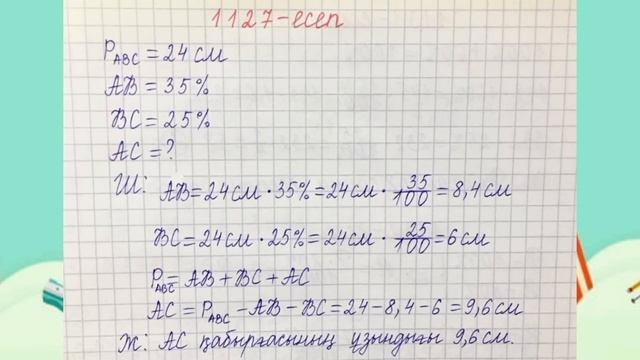 1127-есеп
P_ABC = 24 см
AB = 35%
BC = 25%
AC = ?
Ш: AB = 24 см · 35% = 24 см · 35/100 = 8,4 см
BC = 24 см · 25% = 24 см · 25/100 = 6 см
P_ABC = AB + BC + AC
AC = P_ABC - AB - BC = 24 - 8,4 - 6 = 9,6 см
Ж: AC қабырғасының ұзындығы 9,6 см.